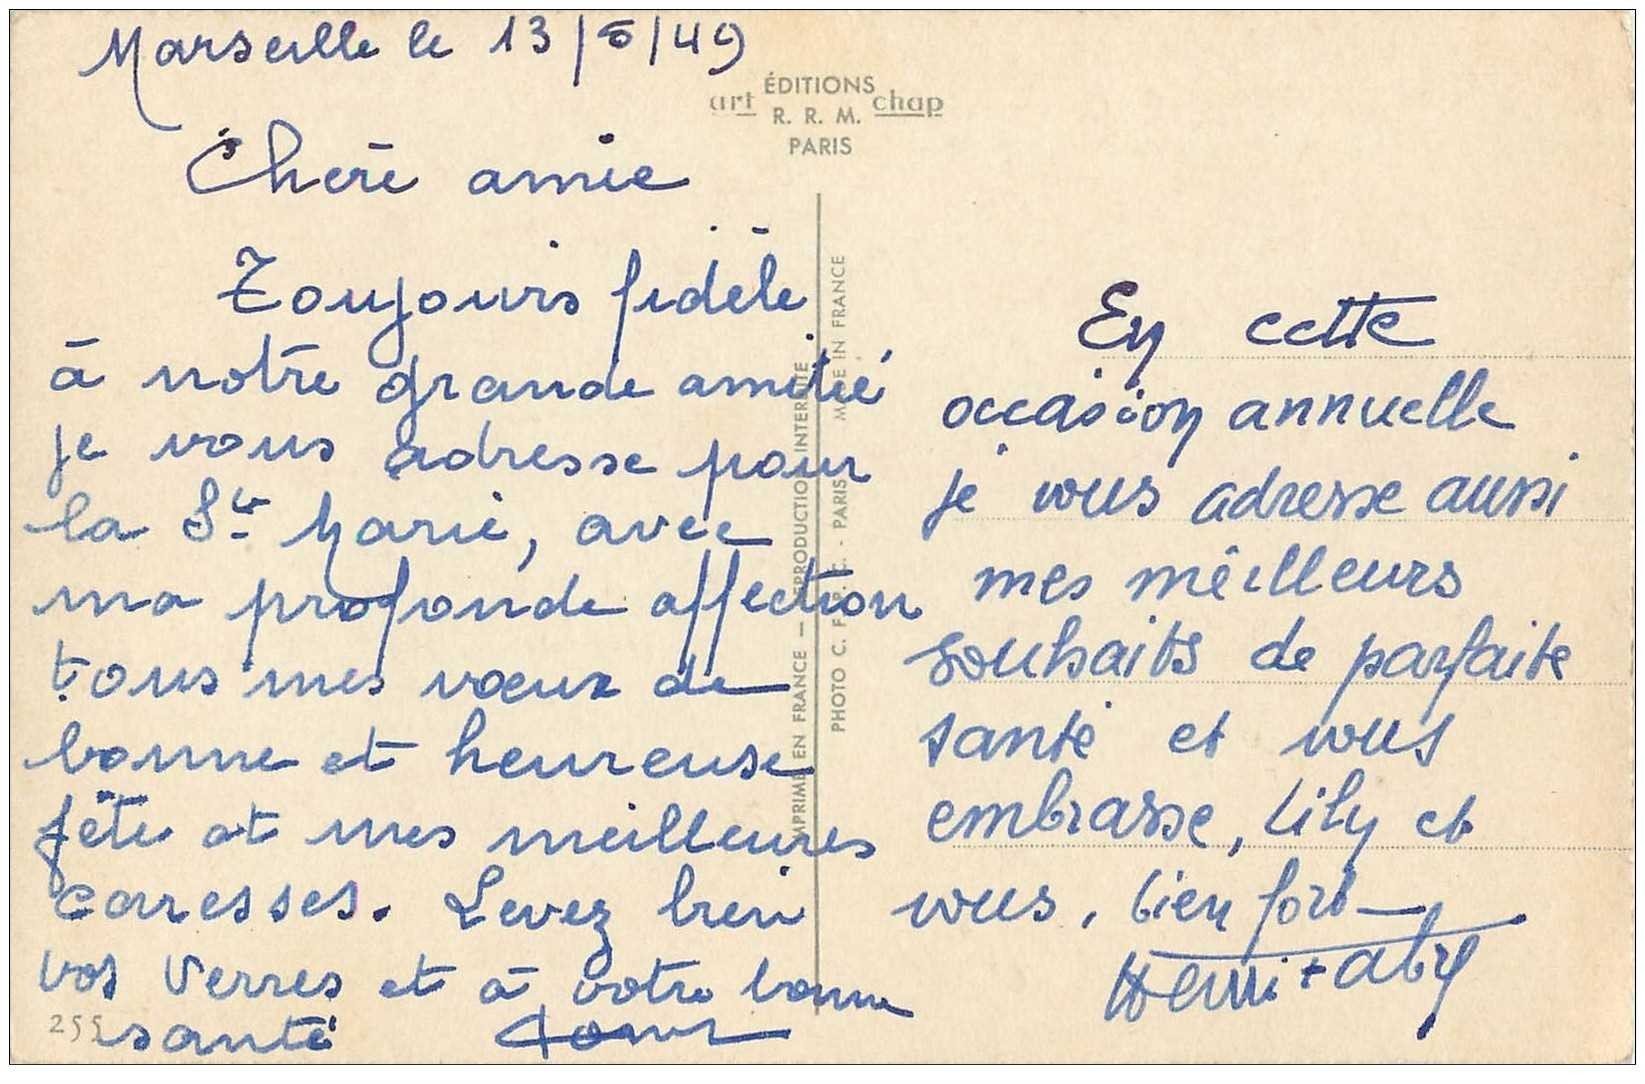 Marseille le 13/8/49
Chère amie
Toujours fidèle
à notre grande amitié
je vous adresse pour
la Ste Marie, avec
ma profonde affection
tous mes vœux de
bonne et heureuse
fête et mes meilleures
caresses. Levez bien
vos verres et à votre bonne
santé
255
ÉDITIONS
art R. R. M. chap
PARIS
IMPRIMÉ EN FRANCE — REPRODUCTION INTERDITE
PHOTO C. F. A. P. C. - PARIS MADE IN FRANCE
En cette
occasion annuelle
je vous adresse aussi
mes meilleurs
souhaits de parfaite
santé et vous
embrasse, Lily et
vous, bien fort
Henri